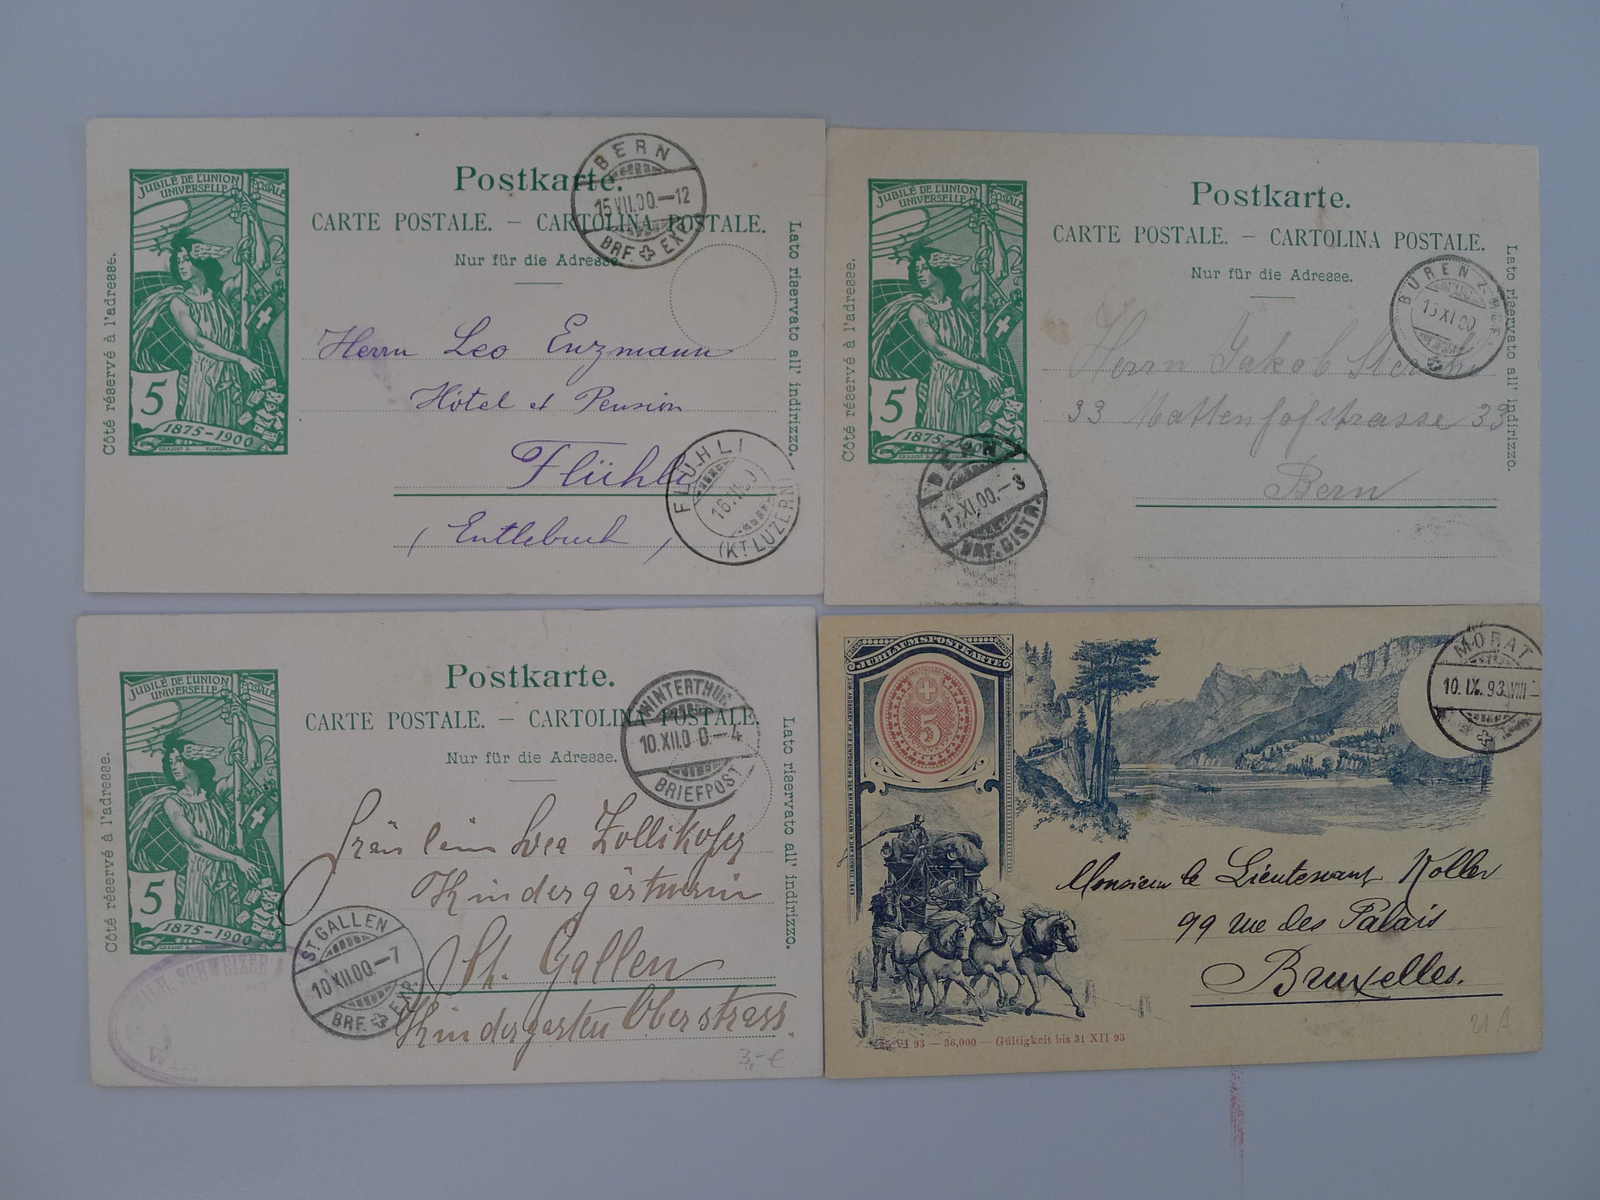 JUBILÉ DE L'UNION
UNIVERSELLE POSTALE
5
1875-1900
Côté réservé à l'adresse.
Postkarte.
CARTE POSTALE. — CARTOLINA POSTALE.
Nur für die Adresse.
Lato riservato all' indirizzo.
BERN
15.VII.00.-12
BRF. EXP.
Herrn Leo Enzmann
Hôtel et Pension
Flühli
(Entlebuch)
FLÜHLI
(KT. LUZERN)
JUBILÉ DE L'UNION
UNIVERSELLE POSTALE
5
1875-1900
Côté réservé à l'adresse.
Postkarte.
CARTE POSTALE. — CARTOLINA POSTALE.
Nur für die Adresse.
Lato riservato all' indirizzo.
BÜREN
Herrn Jakob
33 Mattenhofstrasse 33
Bern
BERN
XI.00.-3
BRF. DISTR.
JUBILÉ DE L'UNION
UNIVERSELLE POSTALE
5
1875-1900
Côté réservé à l'adresse.
Postkarte.
CARTE POSTALE. — CARTOLINA POSTALE.
Nur für die Adresse.
Lato riservato all' indirizzo.
WINTERTHUR
10.XII.00.-4
BRIEFPOST
Fräulein Zollikofer
Kindergärtnerin
St. Gallen
Kindergarten Oberstrass
ST. GALLEN
10.XII.00.-7
BRF. EXP.
SCHWEIZER
3,-€
JUBILÄUMSPOSTKARTE
5
MORAT
10.IX.93.VIII-
Monsieur le Lieutenant Koller
99 rue des Palais
Bruxelles.
VI 93 — 36,000 — Gültigkeit bis 31 XII 93
21 A